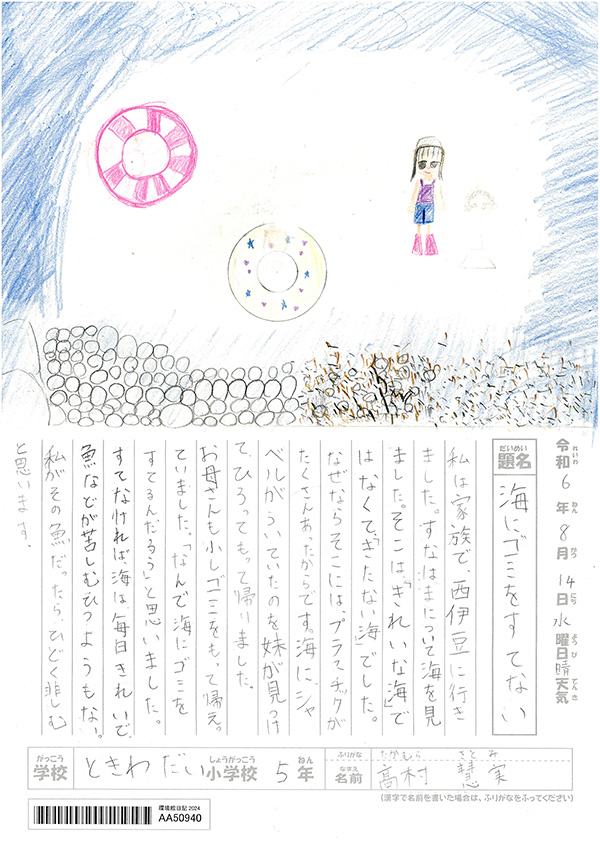 令和6年8月14日水曜日晴天気
れいわ ねん がつ にち ようび てんき
だいめい
題名
海にゴミをすてない
私は家族で、西伊豆に行き
ました。すなはまについて海を見
ました。そこは、「きれいな海」で
はなくて、「きたない海」でした。
なぜならそこには、プラスチックが
たくさんあったからです。海に、シャ
ベルがういていたのを妹が見つけ
て、ひろってもって帰りました。
お母さんも小しゴミをもって帰え。
ていました。「なんで海にゴミを
すてるんだろう」と思いました。
すてなければ、海は、毎日きれいで、
魚などが苦しむひつようもない。
私がその魚だったら、ひどく悲しむ
と思います。
がっこう
学校
ときわだい
しょうがっこう
小学校
5
ねん
年
ふりがな
たかむら さとみ
なまえ
名前
髙村 慧実
(漢字で名前を書いた場合は、ふりがなをふってください)
環境絵日記 2024
AA50940